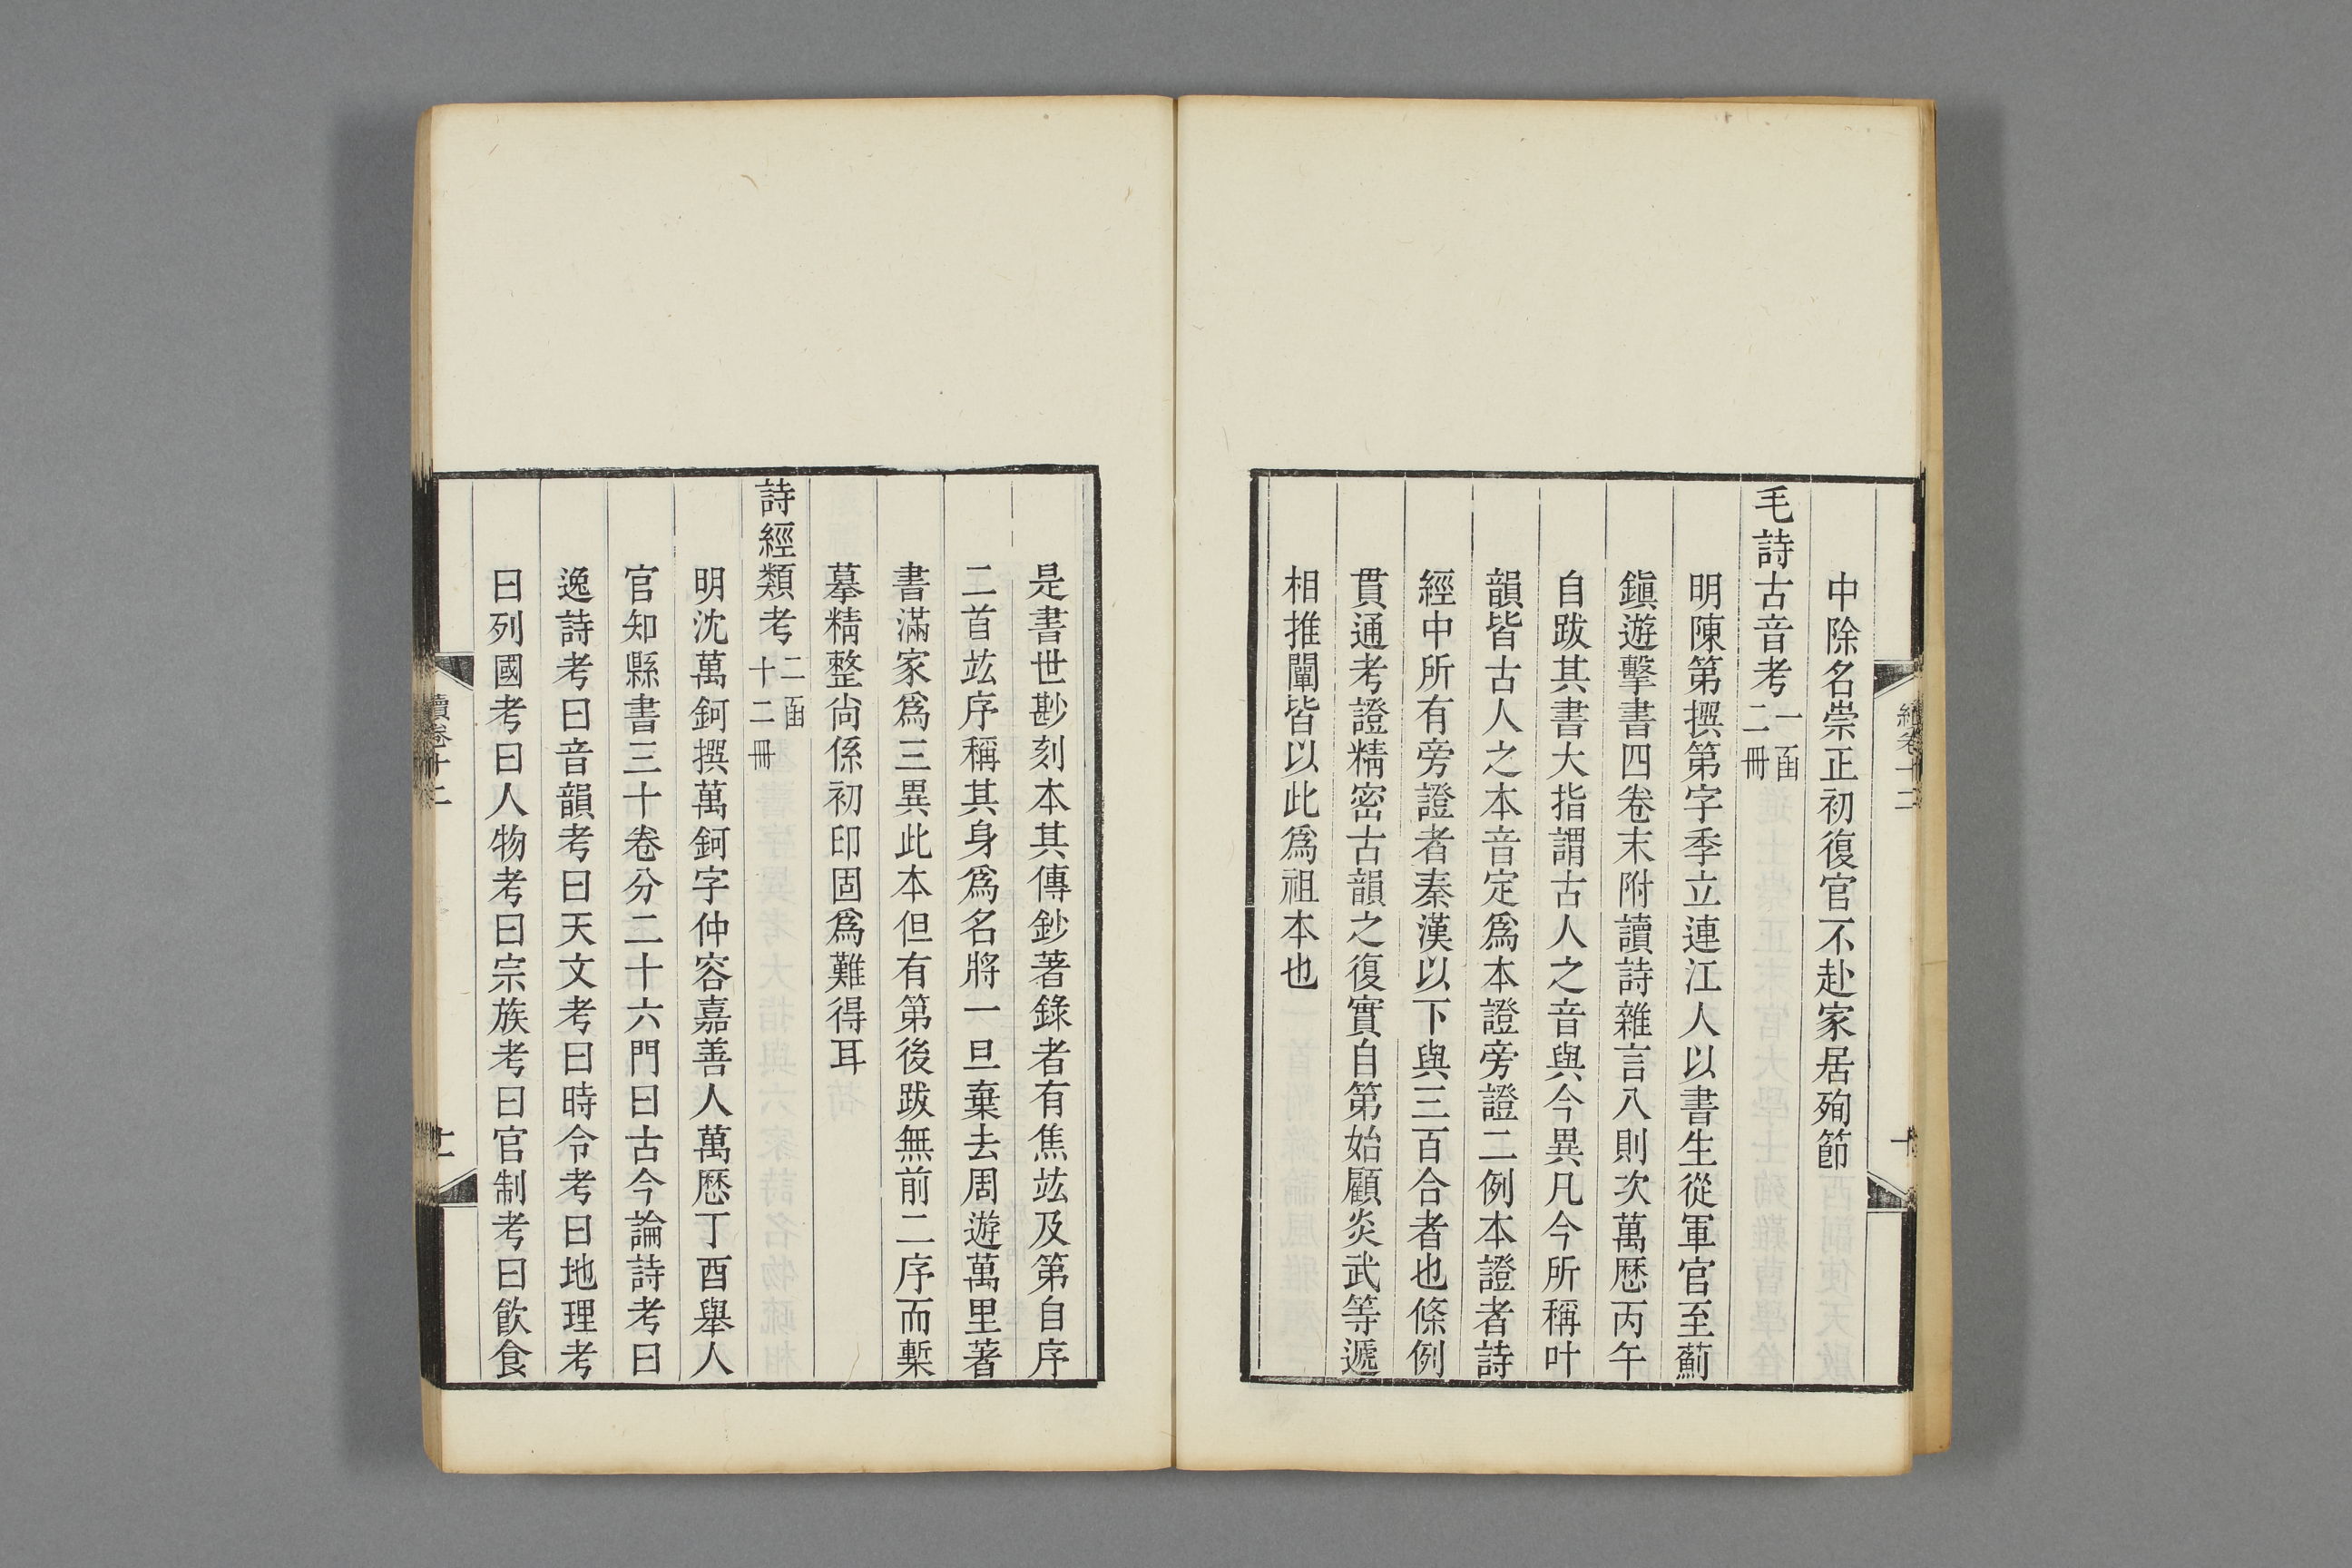 中除名崇正初復官不赴家居殉節
毛詩古音考一函二冊
明陳第撰第字季立連江人以書生從軍官至薊
鎭遊擊書四卷末附讀詩雜言八則次萬歷丙午
自跋其書大指謂古人之音與今異凡今所稱叶
韻皆古人之本音定爲本證旁證二例本證者詩
經中所有旁證者秦漢以下與三百合者也條例
貫通考證精密古韻之復實自第始顧炎武等遞
相推闡皆以此爲祖本也
是書世尠刻本其傳鈔著錄者有焦竑及第自序
二首竑序稱其身爲名將一旦棄去周遊萬里著
書滿家爲三異此本但有第後跋無前二序而槧
摹精整尙係初印固爲難得耳
詩經類考二函十二冊
明沈萬鈳撰萬鈳字仲容嘉善人萬歷丁酉舉人
官知縣書三十卷分二十六門曰古今論詩考曰
逸詩考曰音韻考曰天文考曰時令考曰地理考
曰列國考曰人物考曰宗族考曰官制考曰飮食